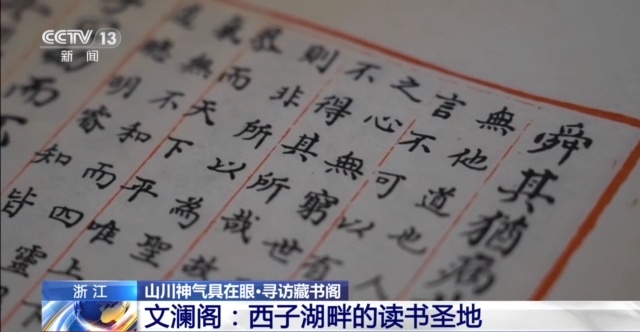 CCTV 13
新闻
舜其猶病
無他道也人
言不可以有
之心無窮世
不得其所哉
則非所以為聖
恭而天下平唯上
氣無不和而四靈
聰明睿知皆
浙江
山川神气具在眼·寻访藏书阁
文澜阁：西子湖畔的读书圣地